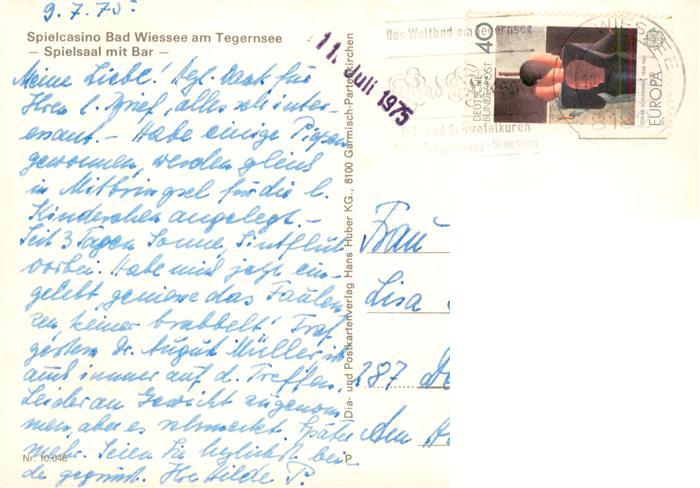 9.7.75
Spielcasino Bad Wiessee am Tegernsee
– Spielsaal mit Bar –
Meine Liebe! Hzl. Dank für
Ihren l. Brief, alles sehr inter-
essant. – Habe einige
gewonnen, werden gleich
in Mitbringsel für die l.
Kinderchen angelegt. –
Seit 3 Tagen Sonne, Sintflut
vorbei. Habe mich jetzt ein-
gelebt, geniese das Faulen-
zen, keiner brabbelt! Traf
gestern Dr. August Müller, ist
auch immer auf d. Treffen.
Leider an Gewicht zugenom
men, aber es schmeckt. Später
mehr. Seien Sie herzlichst bei-
de gegrüsst. Ihre Hilde P.
Nr. 10.046
Dia- und Postkartenverlag Hans Huber KG., 8100 Garmisch-Partenkirchen
P
11. Juli 1975
Das Weltbad am Tegernsee
Bad
Jod- und Schwefelkuren
Entspannung-Genesung
40
DEUTSCHE
BUNDESPOST
EUROPA
Frau
Lisa
287 De
Am H